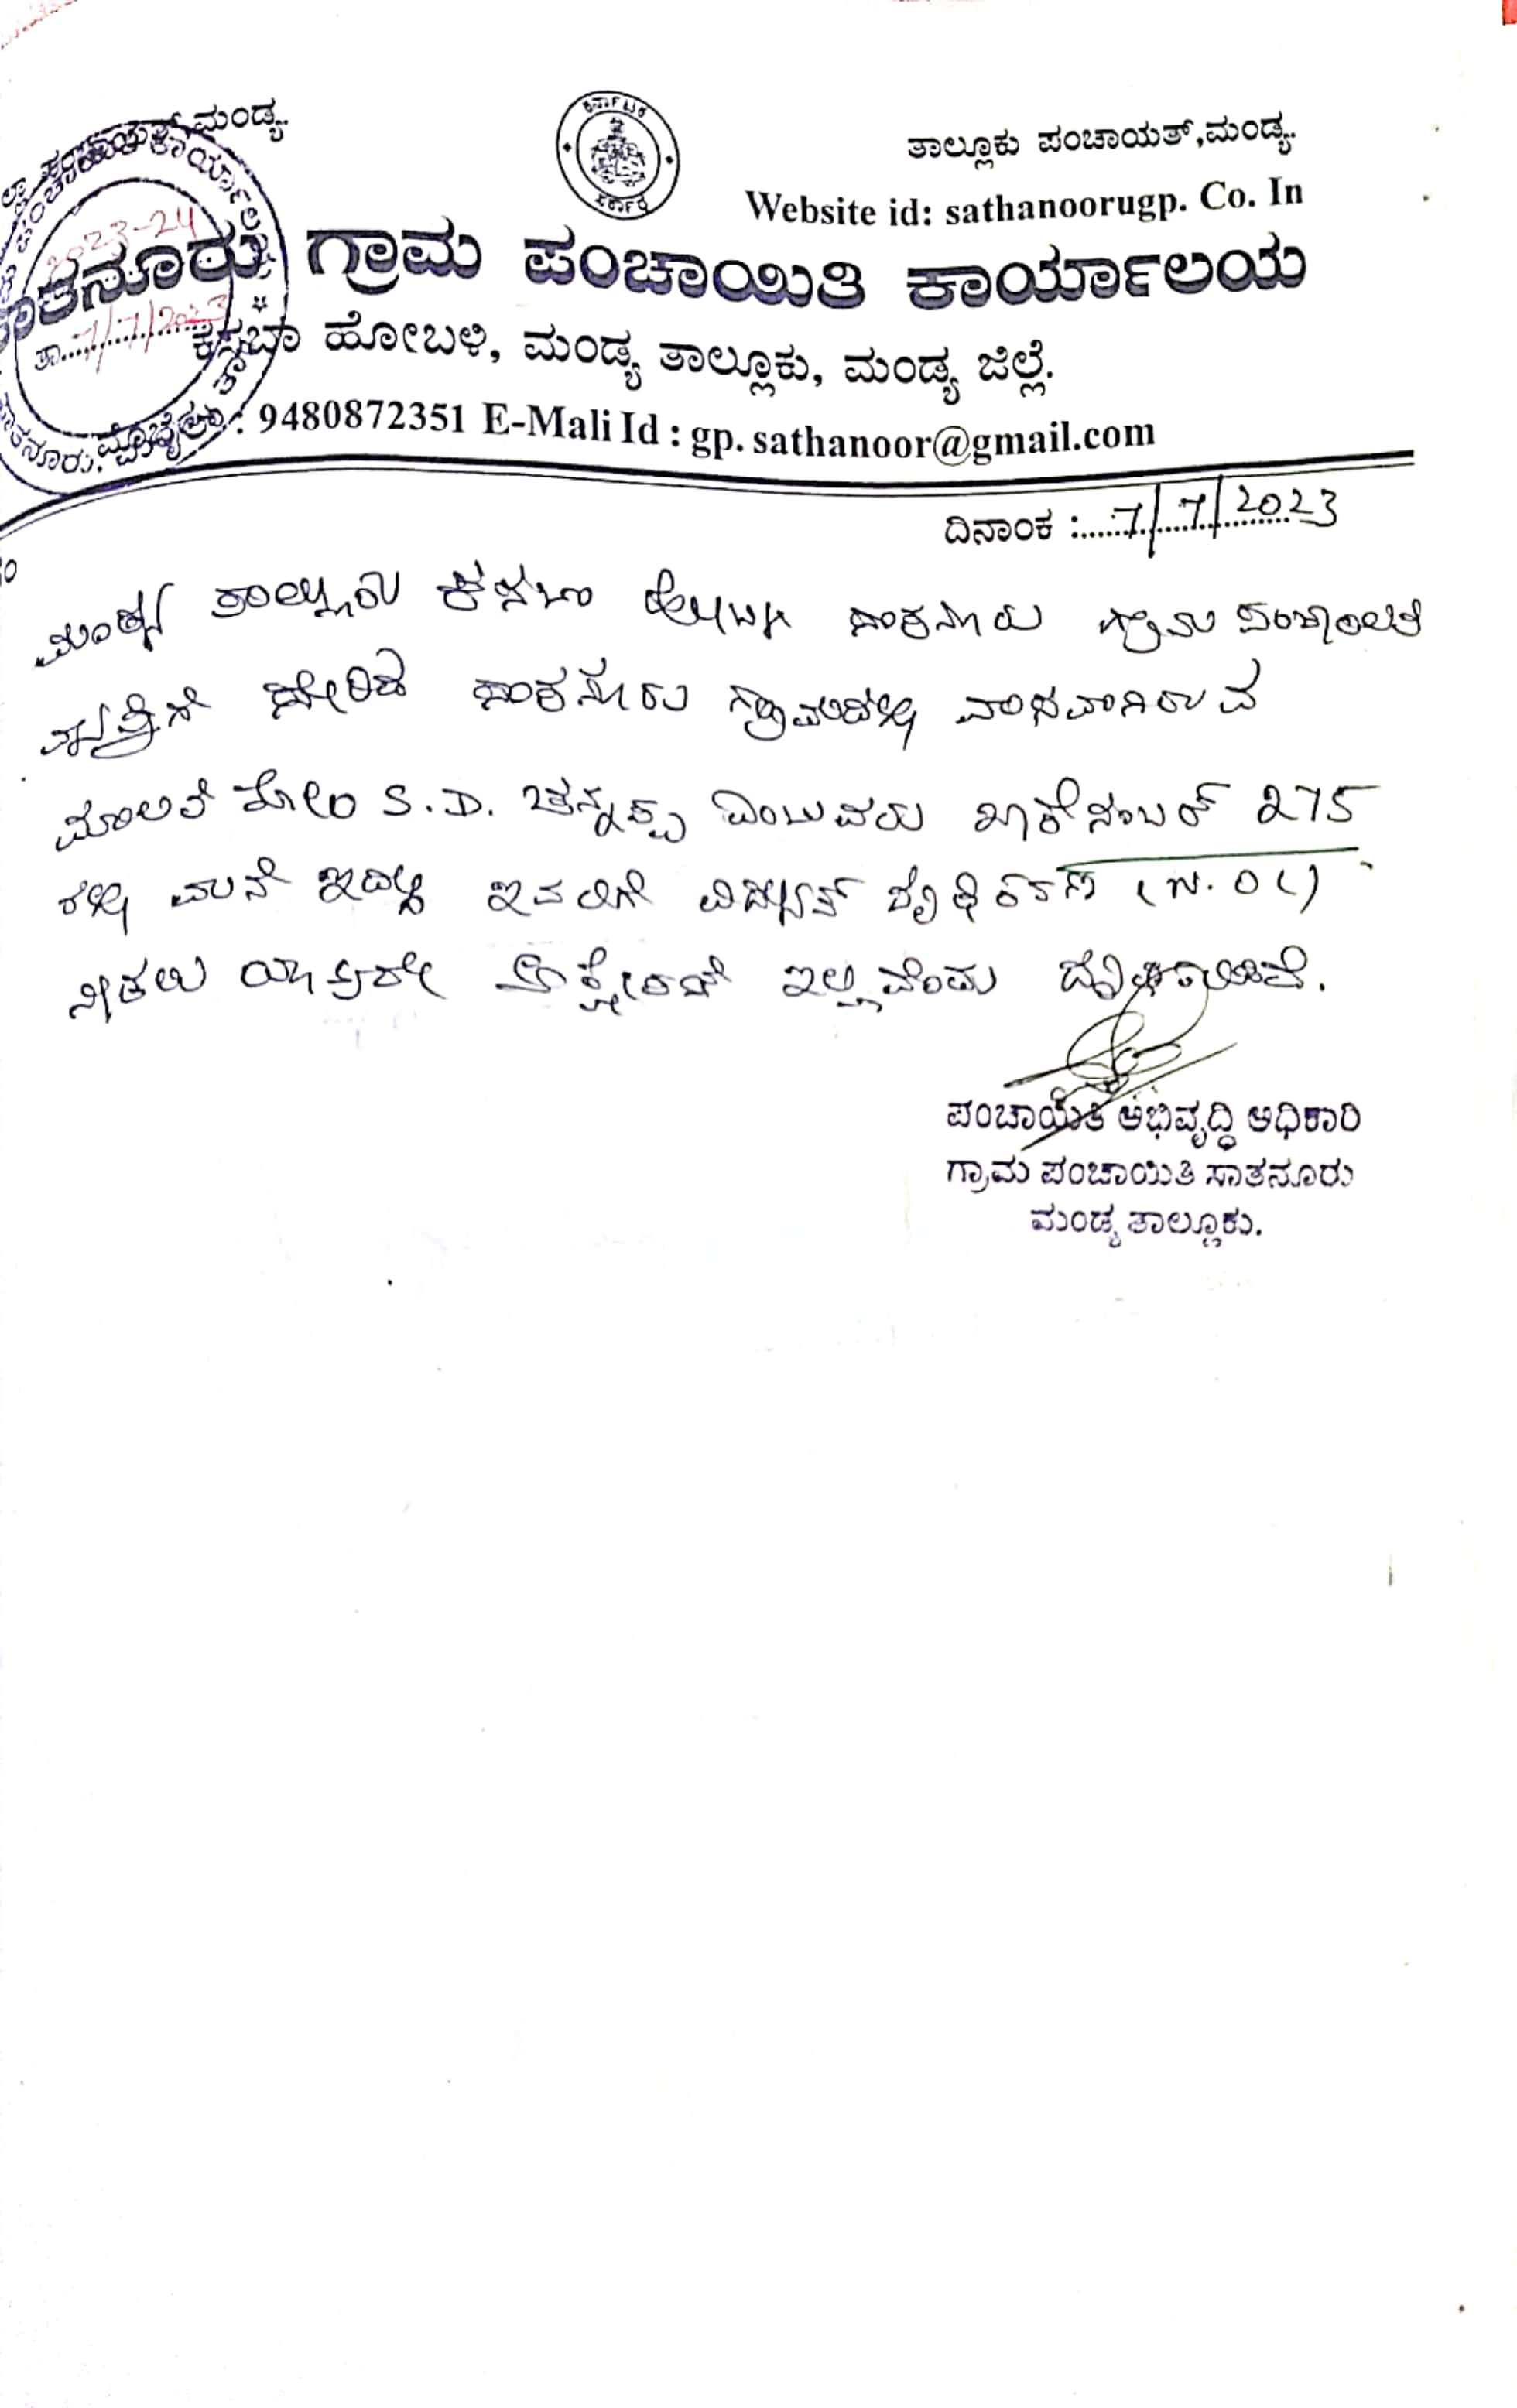 ಪಂಚಾಯತ್,ಮಂಡ್ಯ.
ಕರ್ನಾಟಕ
ಸರ್ಕಾರ
ತಾಲ್ಲೂಕು ಪಂಚಾಯತ್,ಮಂಡ್ಯ.
Website id: sathanoorugp. Co. In
2023-24
ಸಾತನೂರು ಗ್ರಾಮ ಪಂಚಾಯಿತಿ ಕಾರ್ಯಾಲಯ
ತಾ......7/7/2023
ಕಸಬಾ ಹೋಬಳಿ, ಮಂಡ್ಯ ತಾಲ್ಲೂಕು, ಮಂಡ್ಯ ಜಿಲ್ಲೆ.
ಮೊಬೈಲ್ : 9480872351 E-Mali Id : gp. sathanoor@gmail.com
ದಿನಾಂಕ : 7/7/2023
ಮಂಡ್ಯ ತಾಲ್ಲೂಕು ಕಸಬಾ ಹೋಬಳಿ ಸಾತನೂರು ಗ್ರಾಮ ಪಂಚಾಯಿತಿ
ವ್ಯಾಪ್ತಿಗೆ ಸೇರಿದ ಸಾತನೂರು ಗ್ರಾಮದಲ್ಲಿ ವಾಸವಾಗಿರುವ
S.D. ಚನ್ನಪ್ಪ ಎಂಬುವರು ಖಾತೆ ನಂಬರ್ 275
ರಲ್ಲಿ ಮನೆ ಇದ್ದು ಇವರಿಗೆ ವಿದ್ಯುತ್ (N.OC)
ನೀಡಲು ಯಾವುದೇ ಆಕ್ಷೇಪಣೆ ಇಲ್ಲವೆಂದು ದೃಢೀಕರಿಸಿದೆ.
ಪಂಚಾಯಿತಿ ಅಭಿವೃದ್ಧಿ ಅಧಿಕಾರಿ
ಗ್ರಾಮ ಪಂಚಾಯಿತಿ ಸಾತನೂರು
ಮಂಡ್ಯ ತಾಲ್ಲೂಕು.